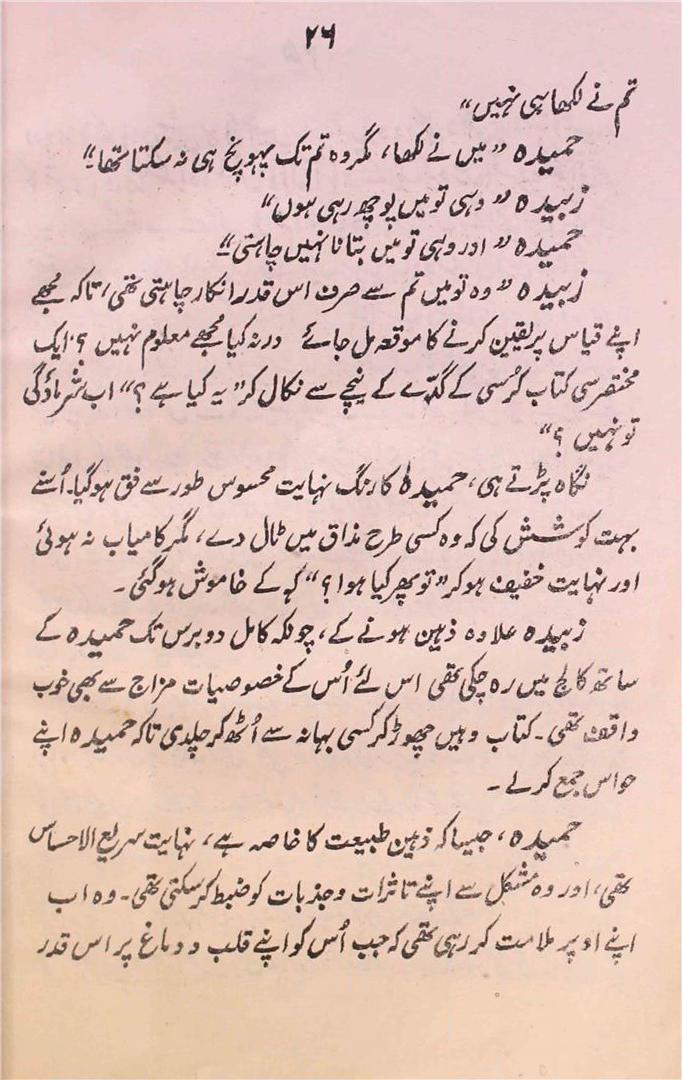 ۲۶
تم نے لکھا ہی نہیں"
حمیدہ "میں نے لکھا، مگر وہ تم تک پہونچ ہی نہ سکتا تھا۔"
زبیدہ "وہی تو میں پوچھ رہی ہوں"
حمیدہ "اور وہی تو میں بتانا نہیں چاہتی۔"
زبیدہ "وہ تو میں تم سے صرف اس قدر انکار چاہتی تھی، تاکہ مجھے
اپنے قیاس پر یقین کرنے کا موقعہ مل جائے ورنہ کیا مجھے معلوم نہیں؟ ایک
مختصر سی کتاب کرسی کے گدّے کے نیچے سے نکال کر "یہ کیا ہے؟" اب شرماؤگی
تو نہیں؟"
نگاہ پڑتے ہی، حمیدہ کا رنگ نہایت محسوس طور سے فق ہوگیا۔ اُسنے
بہت کوشش کی کہ وہ کسی طرح مذاق میں ٹال دے، مگر کامیاب نہ ہوئی
اور نہایت خفیف ہوکر "تو پھر کیا ہوا؟" کہہ کے خاموش ہوگئی۔
زبیدہ علاوہ ذہین ہونے کے، چونکہ کامل دو برس تک حمیدہ کے
ساتھ کالج میں رہ چکی تھی اس لئے اُس کے خصوصیات مزاج سے بھی خوب
واقف تھی۔ کتاب وہیں چھوڑ کر کسی بہانہ سے اُٹھ کر چلدی تاکہ حمیدہ اپنے
حواس جمع کرلے۔
حمیدہ، جیسا کہ ذہین طبیعت کا خاصہ ہے، نہایت سریع الاحساس
تھی، اور وہ مشکل سے اپنے تاثرات و جذبات کو ضبط کرسکتی تھی۔ وہ اب
اپنے اوپر ملامت کر رہی تھی کہ جب اُس کو اپنے قلب و دماغ پر اس قدر